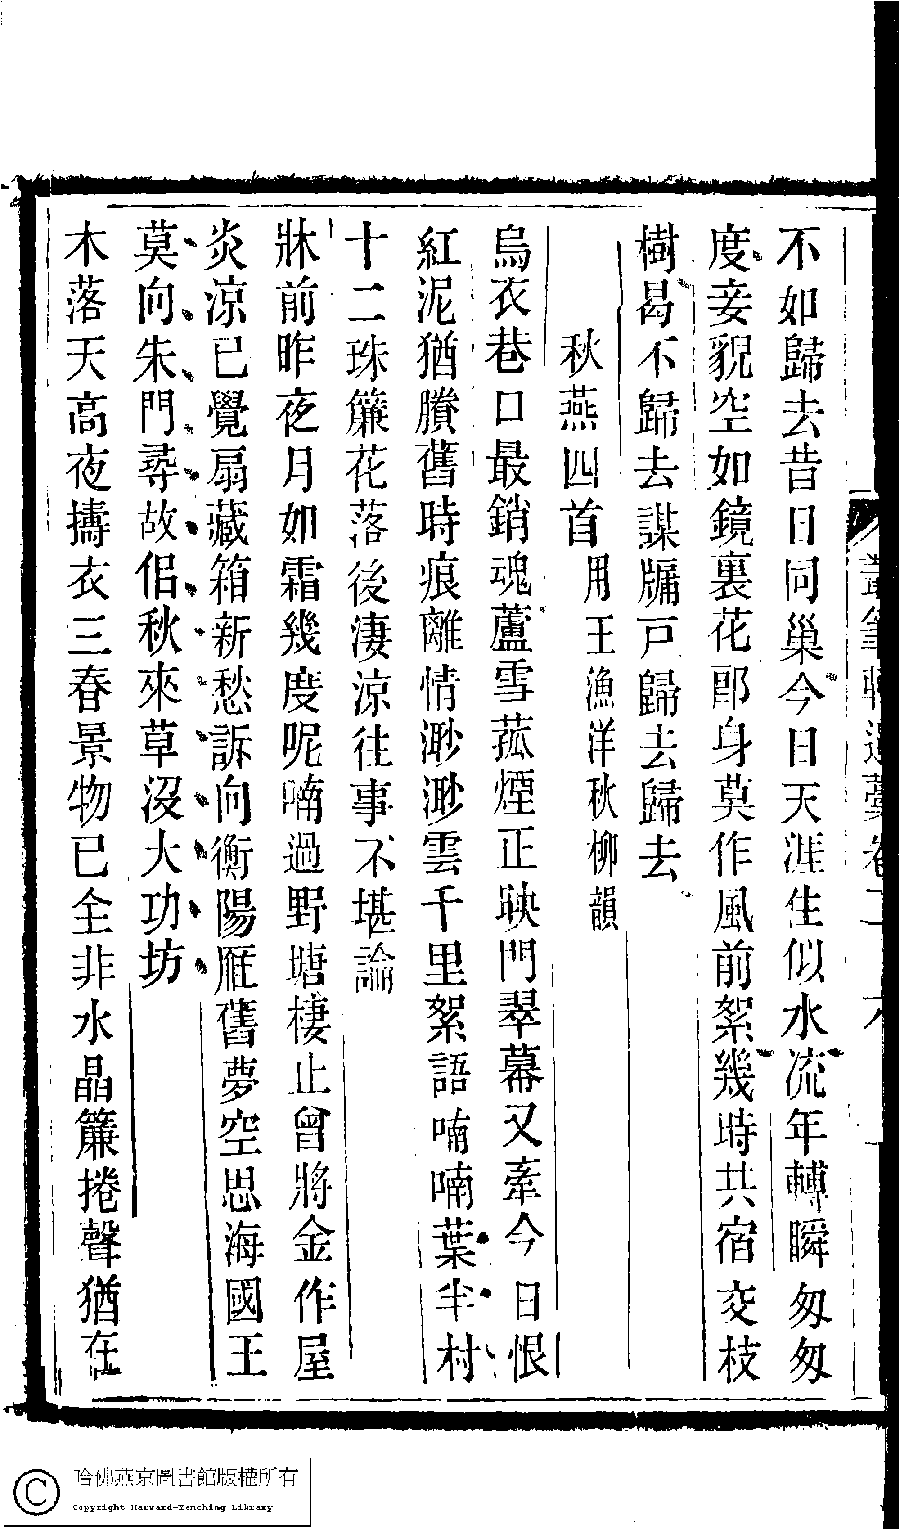 不如歸去昔日同巢今日天涯住似水流年轉瞬匆匆
度妾貌空如鏡裏花郎身莫作風前絮幾時共宿交枝
樹曷不歸去謀牖戸歸去歸去
秋燕四首用王漁洋秋柳韻
烏衣巷口最銷魂蘆雪菰煙正映門翠幕又牽今日恨
紅泥猶賸舊時痕離情渺渺雲千里絮語喃喃葉半村
十二珠簾花落後淒涼往事不堪論
牀前昨夜月如霜幾度呢喃過野塘棲止曾將金作屋
炎涼已覺扇藏箱新愁訴向衡陽雁舊夢空思海國王
莫向朱門尋故侶秋來草沒大功坊
木落天高夜擣衣三春景物已全非水晶簾捲聲猶在
哈佛燕京圖書館版權所有
Copyright Harvard-Yenching Library